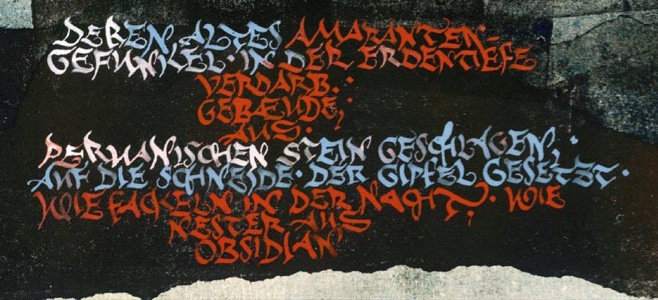 DEREN ALTES AMARANTEN-
GEFUNKEL· IN DER ERDENTIEFE
VERDARB.·
GEBÆUDE,
AUS·
PERUANISCHEN STEIN GESCHLAGEN,·
AUF DIE SCHNEIDE· DER GIPFEL GESETZT·
WIE FACKELN IN DER NACHT,· WIE
NESTER AUS
OBSIDIAN